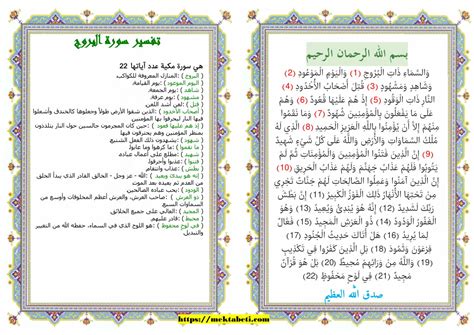 بسم الله الرحمان الرحيم
وَالسَّمَاءِ ذَاتِ الْبُرُوجِ (1) وَالْيَوْمِ الْمَوْعُودِ (2)
وَشَاهِدٍ وَمَشْهُودٍ (3) قُتِلَ أَصْحَابُ الْأُخْدُودِ (4)
النَّارِ ذَاتِ الْوَقُودِ (5) إِذْ هُمْ عَلَيْهَا قُعُودٌ (6) وَهُمْ
عَلَى مَا يَفْعَلُونَ بِالْمُؤْمِنِينَ شُهُودٌ (7) وَمَا نَقَمُوا
مِنْهُمْ إِلَّا أَنْ يُؤْمِنُوا بِاللَّهِ الْعَزِيزِ الْحَمِيدِ (8) الَّذِي لَهُ
مُلْكُ السَّمَاوَاتِ وَالْأَرْضِ وَاللَّهُ عَلَى كُلِّ شَيْءٍ شَهِيدٌ
(9) إِنَّ الَّذِينَ فَتَنُوا الْمُؤْمِنِينَ وَالْمُؤْمِنَاتِ ثُمَّ لَمْ
يَتُوبُوا فَلَهُمْ عَذَابُ جَهَنَّمَ وَلَهُمْ عَذَابُ الْحَرِيقِ (10)
إِنَّ الَّذِينَ آمَنُوا وَعَمِلُوا الصَّالِحَاتِ لَهُمْ جَنَّاتٌ تَجْرِي
مِنْ تَحْتِهَا الْأَنْهَارُ ذَلِكَ الْفَوْزُ الْكَبِيرُ (11) إِنَّ بَطْشَ
رَبِّكَ لَشَدِيدٌ (12) إِنَّهُ هُوَ يُبْدِئُ وَيُعِيدُ (13) وَهُوَ
الْغَفُورُ الْوَدُودُ (14) ذُو الْعَرْشِ الْمَجِيدُ (15) فَعَّالٌ
لِمَا يُرِيدُ (16) هَلْ أَتَاكَ حَدِيثُ الْجُنُودِ (17)
فِرْعَوْنَ وَثَمُودَ (18) بَلِ الَّذِينَ كَفَرُوا فِي تَكْذِيبٍ
(19) وَاللَّهُ مِنْ وَرَائِهِمْ مُحِيطٌ (20) بَلْ هُوَ قُرْآنٌ
مَجِيدٌ (21) فِي لَوْحٍ مَحْفُوظٍ (22)
صدق الله العظيم
تفسير سورة البروج
هي سورة مكية عدد آياتها 22
( البروج ) :المنازل المعروفة للكواكب
( اليوم الموعود ) :يوم القيامة.
( شاهد ) :يوم الجمعة.
( مشهود ) :يوم عرفة.
( قتل ) :لعن أشد اللعن.
( أصحاب الأخدود ) :الذين شقوا الأرض طولاً وجعلوها كالخندق وأشعلوا
فيها النار ليحرقوا بها المؤمنين
( إذ هم عليها قعود ) :حين كان المجرمون جالسين حول النار يتلذذون
بعذاب المؤمنين وهم يحترقون فيها.
( شهود ) :يشهدون ذلك الفعل الشنيع
( نقموا ) :ما كرهوا وما عابوا.
( شهيد ) :مطلع على أعمال عباده
( فتنوا ) :عذبوا وأحرقوا.
( بطش ) :عذاب وانتقام
( إنه هو يبدئ ويعيد ) :الله - عز وجل - الخالق القادر الذي يبدأ الخلق
من العدم ثم يعيده بعد الموت
( الودود ) :يحب عباده الصالحين
( ذو العرش ) :صاحب العرش، والعرش أعظم المخلوقات وأوسع من
السموات السبع.
( المجيد ) :العالي على جميع الخلائق
( لوح محفوظ ) :هو اللوح الذي في السماء، محفوظ من الزيادة والنقص
والتحريف والتبديل
https://mektabeti.com/